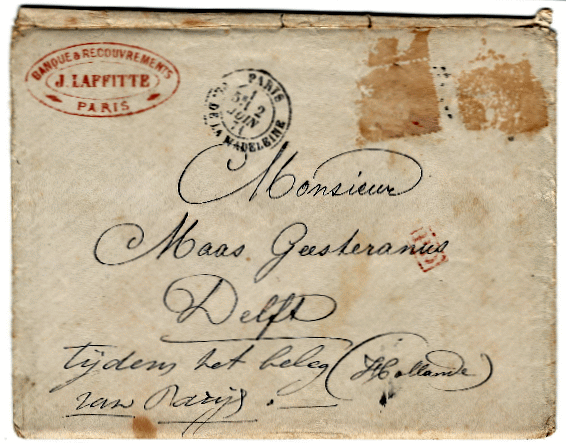 BANQUE & RECOUVREMENTS
J. LAFFITTE
PARIS
PARIS
JUIN
71
DE LA MADELEINE
Monsieur
Maas Geesteranus
Delft
(Hollande)
tijdens het beleg
van Parijs.